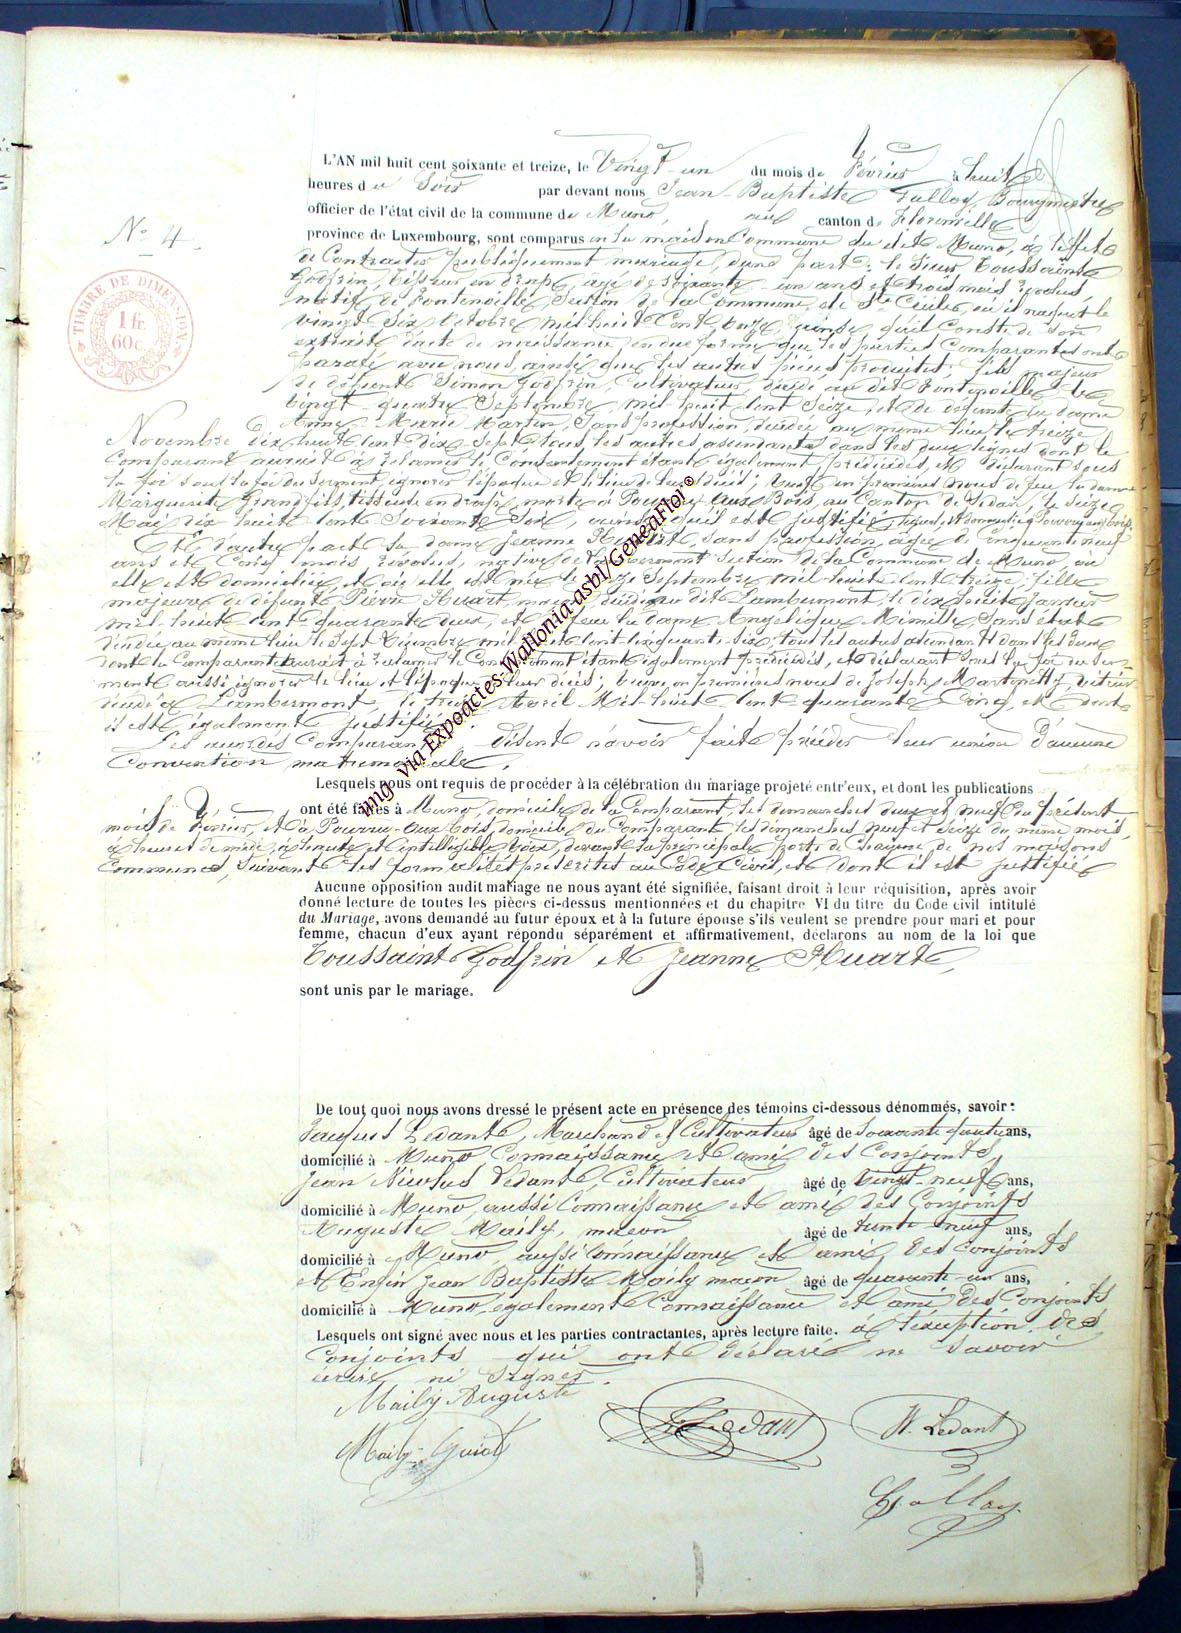 L'AN mil huit cent soixante et treize, le Vingt-un du mois de Février à huit
heures du Soir par devant nous Jean Baptiste Bourgmestre
officier de l'état civil de la commune de Muno, canton de Florenville
province de Luxembourg, sont comparus en la maison Commune du dit Muno, à l'effet
N° 4.
TIMBRE DE DIMENSION
1 fr.
60 c.
de Contracter publiquement mariage, d'une part: le Sieur Toussaint
Godfrin, Tisseur en draps, âgé de soixante-un ans et trois mois révolus
natif de Fontenoille, Section de la Commune de Ste Cécile, où il naquit le
vingt six Octobre mil huit Cent onze, ainsi qu'il Conste de son
extrait d'acte de naissance en due forme que les parties Comparantes ont
parafé avec nous, ainsi que les autres pièces produites; fils majeur
de défunt Simon Godfrin, Cultivateur, décédé au dit Fontenoille le
vingt-quatre Septembre mil huit Cent Seize, et de défunte la dame
Anne Marie Martin, Sans profession, décédée au même lieu le treize
Novembre dix huit Cent dix-Sept, tous les autres ascendants dans les deux lignes dont le
Comparant aurait à réclamer le Consentement étant également prédécédés, et déclarant sous
la foi sous la foi du Serment, ignorer l'époque et le lieu de leur décès; Veuf en premières noces de feu la dame
Marguerite tisseuse en draps, morte à Pourru-aux-Bois, au Canton de Sedan, le Seize
Mai dix huit Cent Soixante Six, ainsi qu'il est justifié,
Et d'autre part la dame Jeanne Huart, sans profession, âgée de Cinquante neuf
ans et Cinq mois révolus, native de Lambermont Section de la Commune de Muno, où
elle est domiciliée, et où elle est née le Septembre mil huit Cent treize, fille
majeure de défunt Pierre Huart, décédé au dit Lambermont, le dix huit Janvier
mil huit Cent quarante deux, et de feu la dame Angélique Sans état
décédée au même lieu le Sept Décembre mil huit Cent Cinquante-Six, tous les autres ascendants dans les deux
dont la Comparante aurait à réclamer le Consentement étant également prédécédés, et déclarant Sous la foi du Ser-
ment aussi ignorer le lieu et l'époque de leur décès; veuve en premières noces de Joseph
décédé à Lambermont, le Avril Mil huit Cent quarante Cinq, et dont
il est également justifié.
Les Comparants disent n'avoir fait précéder leur union d'aucune
Convention matrimoniale.
Lesquels nous ont requis de procéder à la célébration du mariage projeté entr'eux, et dont les publications
ont été faites à Muno, domicile de la Comparante, les dimanches deux et neuf du présent
mois de Février, et à Pourru-aux-bois, domicile du Comparant, les dimanches neuf et Seize du même mois,
à heures de midi, à haute et intelligible voix, devant la principale porte de chacune de nos maisons
Communes, Suivant les formalités prescrites au Code Civil, et dont il est justifié
Aucune opposition audit mariage ne nous ayant été signifiée, faisant droit à leur réquisition, après avoir
donné lecture de toutes les pièces ci-dessus mentionnées et du chapitre VI du titre du Code civil intitulé
du Mariage, avons demandé au futur époux et à la future épouse s'ils veulent se prendre pour mari et pour
femme, chacun d'eux ayant répondu séparément et affirmativement, déclarons au nom de la loi que
Toussaint Godfrin et Jeanne Huart,
sont unis par le mariage.
De tout quoi nous avons dressé le présent acte en présence des témoins ci-dessous dénommés, savoir:
Jacques Ledant, Marchand et Cultivateur âgé de Soixante quatre ans,
domicilié à Muno Connaissance et ami des Conjoints,
Jean Nicolas Ledant, Cultivateur âgé de Vingt-neuf ans,
domicilié à Muno, aussi Connaissance et ami des Conjoints
Auguste Maily, maçon âgé de trente neuf ans,
domicilié à Muno, aussi Connaissance et ami des Conjoints
et Enfin Jean Baptiste Maily maçon âgé de quarante-un ans,
domicilié à Muno également Connaissance et ami des Conjoints
Lesquels ont signé avec nous et les parties contractantes, après lecture faite. à l'exception des
Conjoints qui ont déclaré ne Savoir
écrire ni Signer.
Maily Auguste
Ledant
N. Ledant
img via Expoactes-Wallonia-asbl/GeneaFlor®